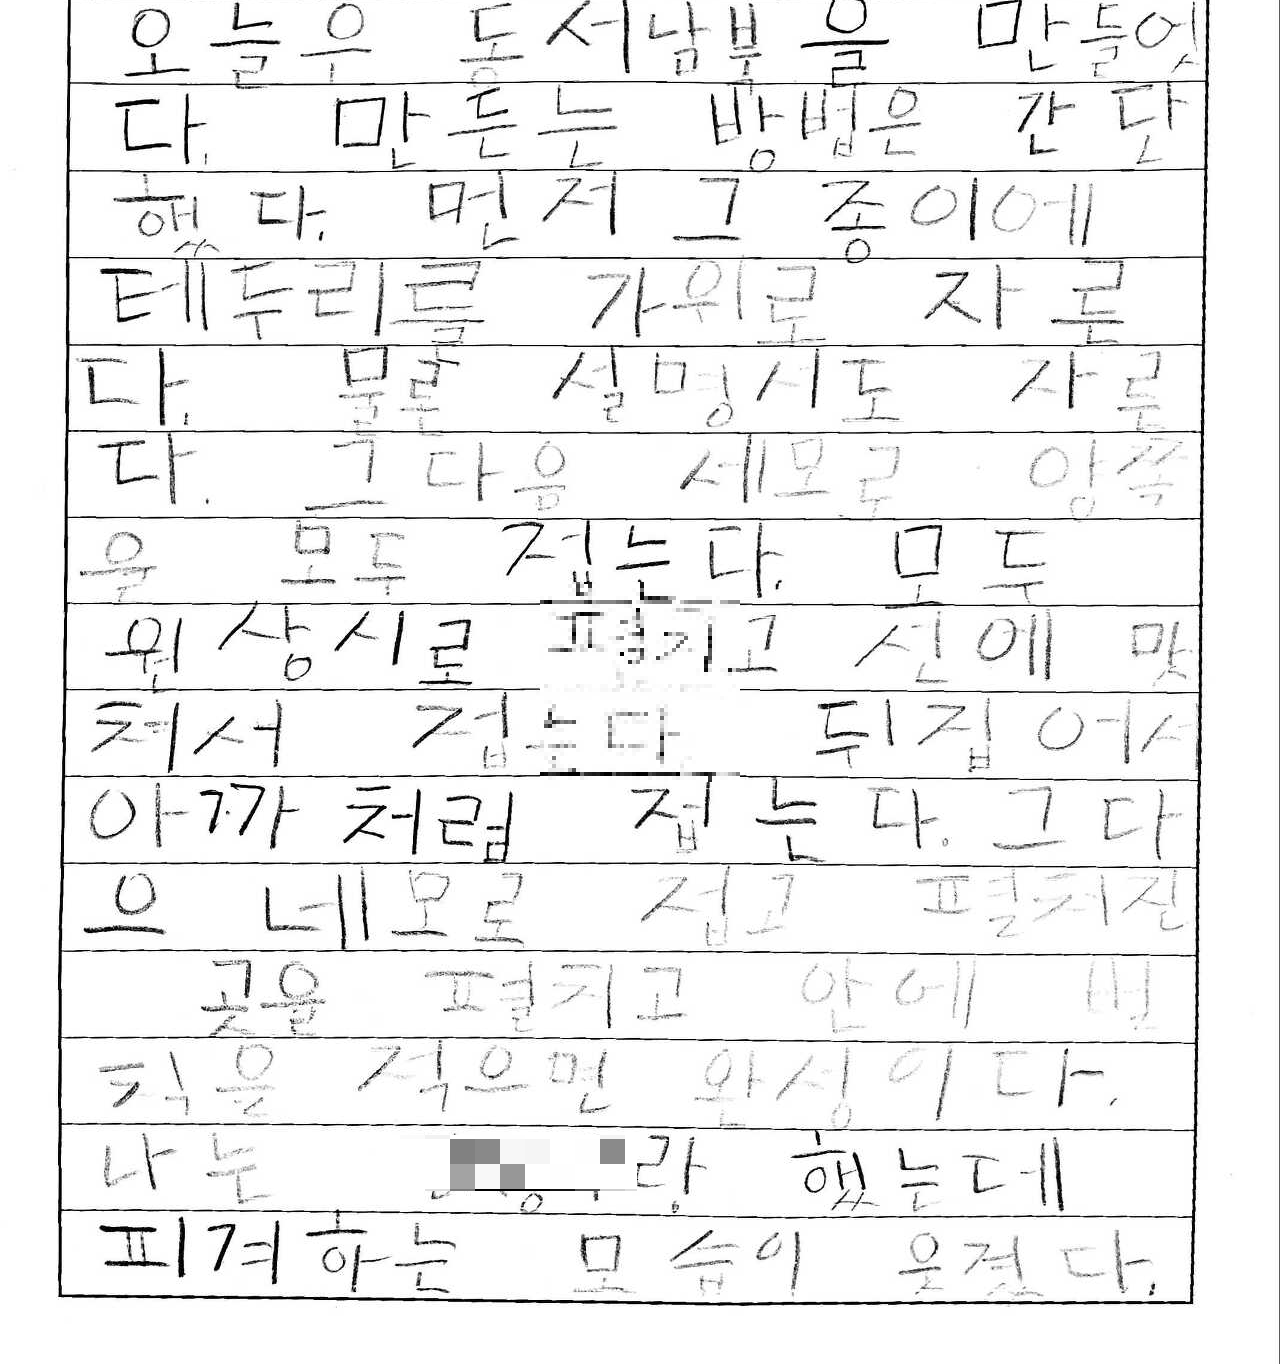 오늘우 동서남북을 만들엇
다. 만든는 방법은 간단
했다. 먼저 그 종이에
테두리를 가위로 자른
다. 물론 설명서도 자른
다. 그다음 세모로 양쪽
을 모두 접는다. 모두
원상시로 펼치고 선에 맞
처서 접는다 뒤집어서
아까처럼 접는다. 그다
으 네모로 접고 펼처진
곳을 펼치고 안에 벌
칙을 적으면 완성이다.
나는 랑 했는데
피겨하는 모습이 웃겼다.